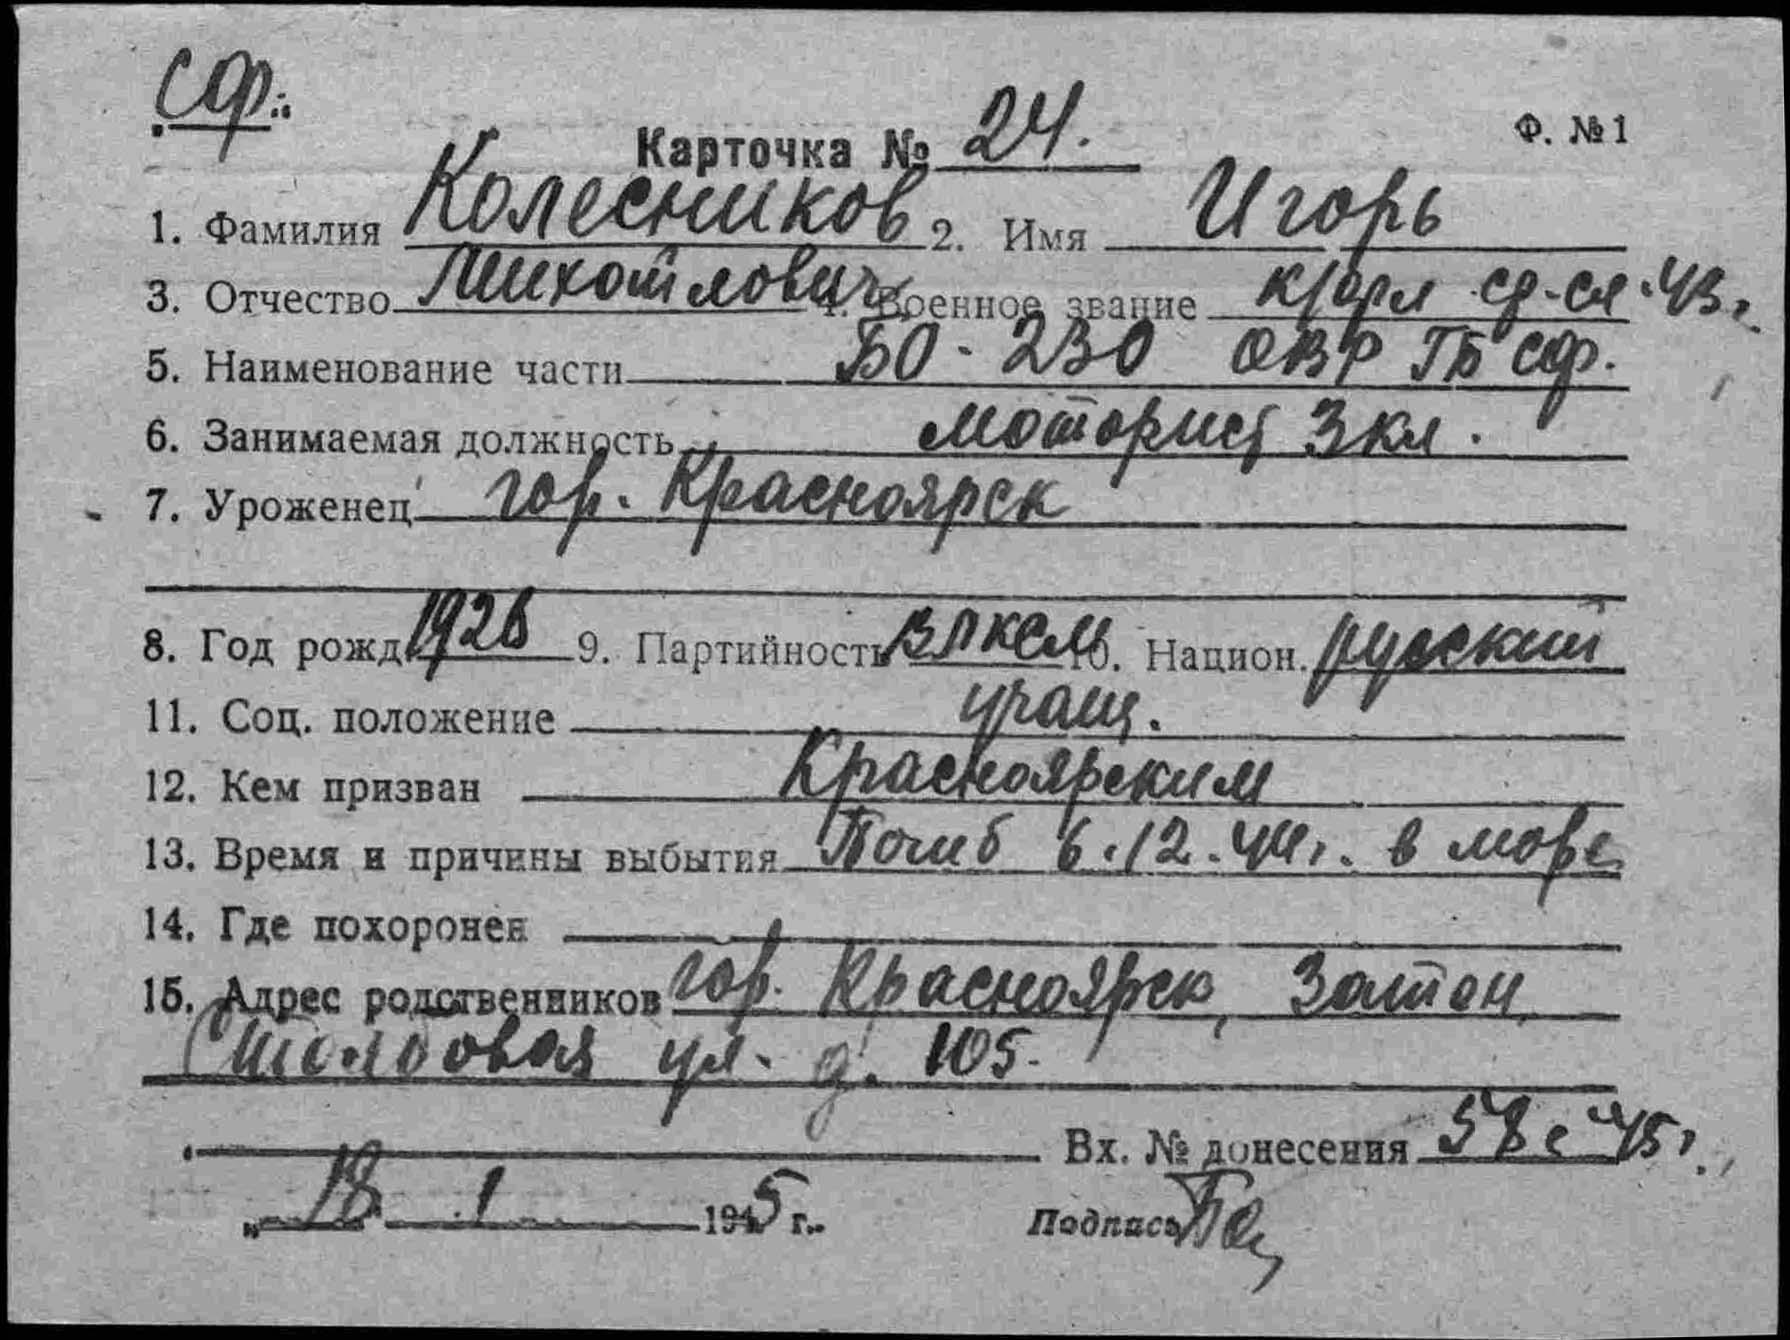 СФ.
Карточка № 24. Ф. №1
1. Фамилия Колесников 2. Имя Игорь
3. Отчество Михайлович 4. Военное звание к/фл ср. сл. 43 г.
5. Наименование части БО-230 ОВР ГБ СФ.
6. Занимаемая должность моторист 3 кл.
7. Уроженец гор. Красноярск
8. Год рожд. 1926 9. Партийность ВЛКСМ 10. Национ. русский
11. Соц. положение учащ.
12. Кем призван Красноярским
13. Время и причины выбытия Погиб 6.12.44г. в море
14. Где похоронен
15. Адрес родственников гор. Красноярск, Затон,
Столбовая ул. д. 105.
Вх. № донесения 58с 45г.
„18 1 1945 г. Подпись